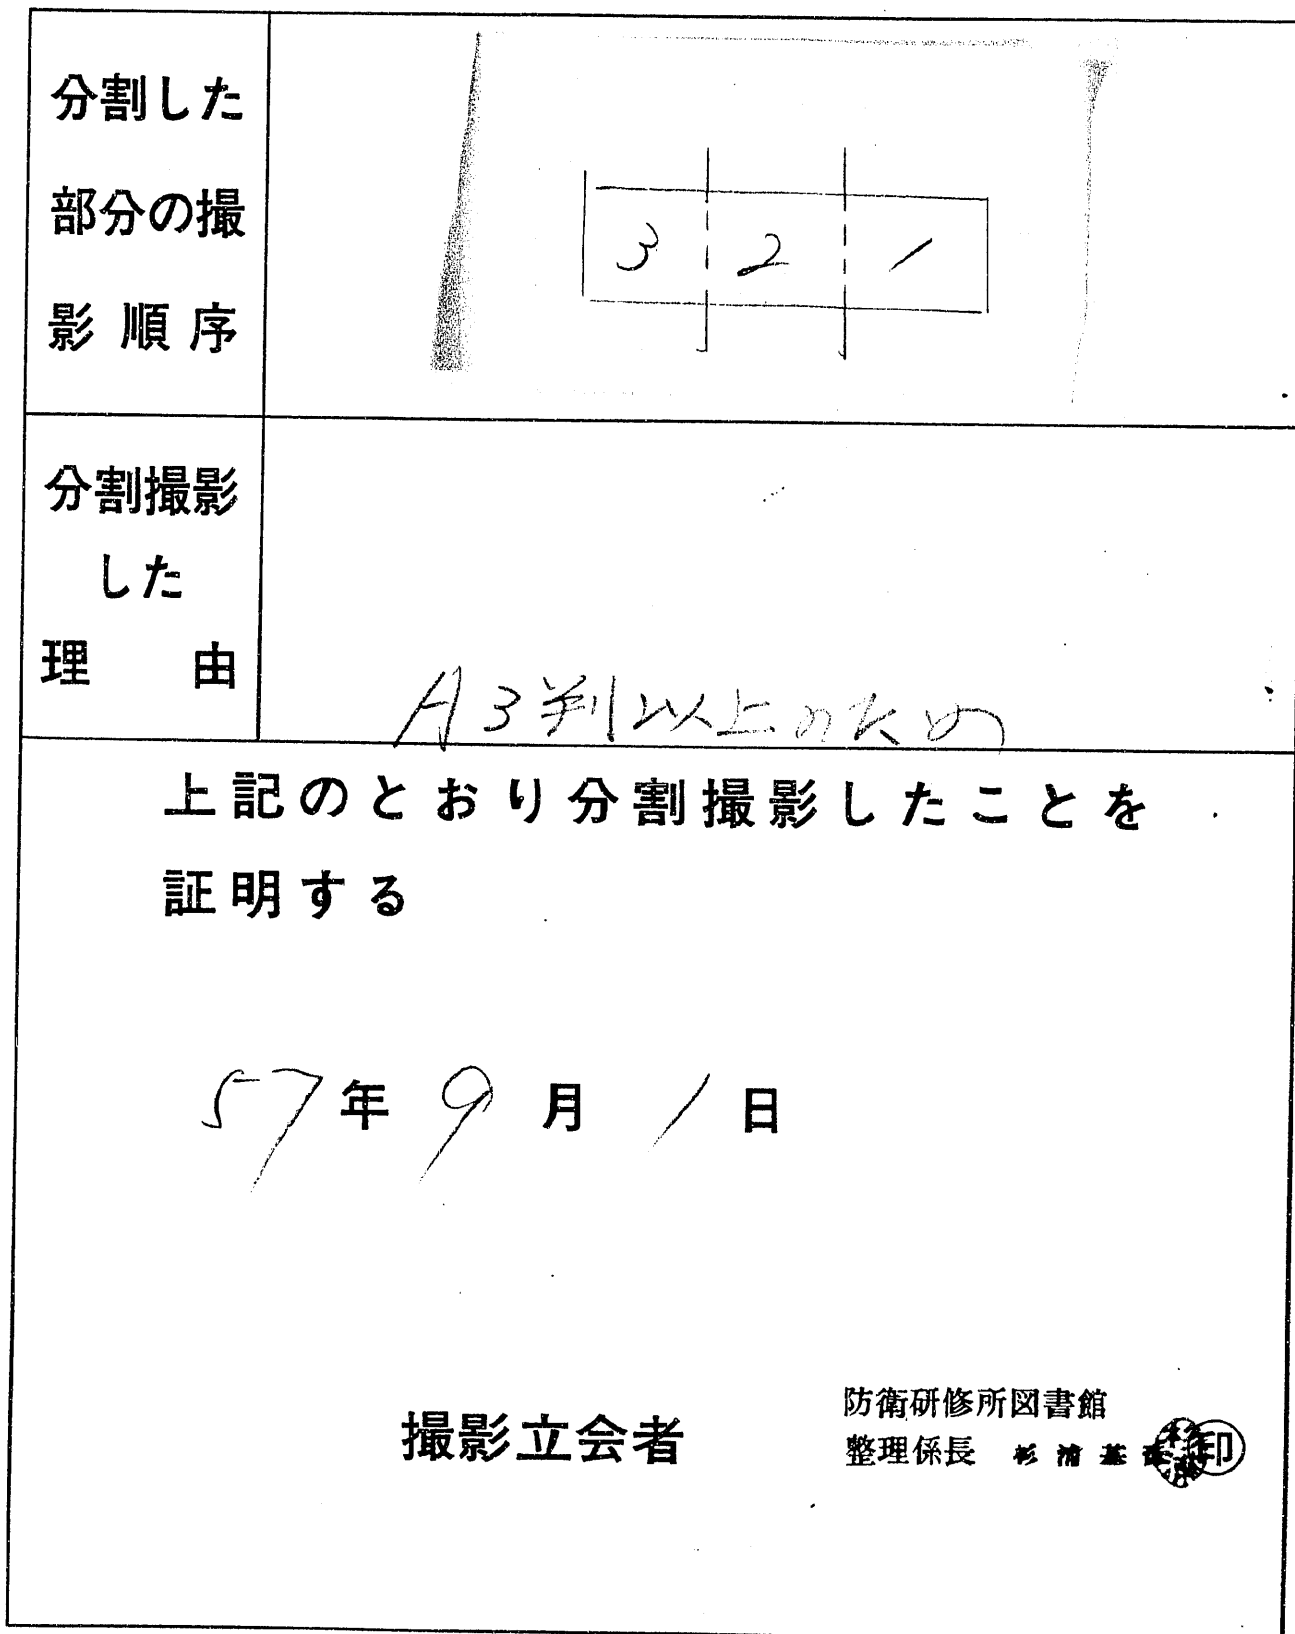 分割した
部分の撮
影順序
3 2 1
分割撮影
した
理由
A3判以上のため
上記のとおり分割撮影したことを
証明する
57年9月1日
撮影立会者
防衛研修所図書館
整理係長 杉浦基
杉浦
印